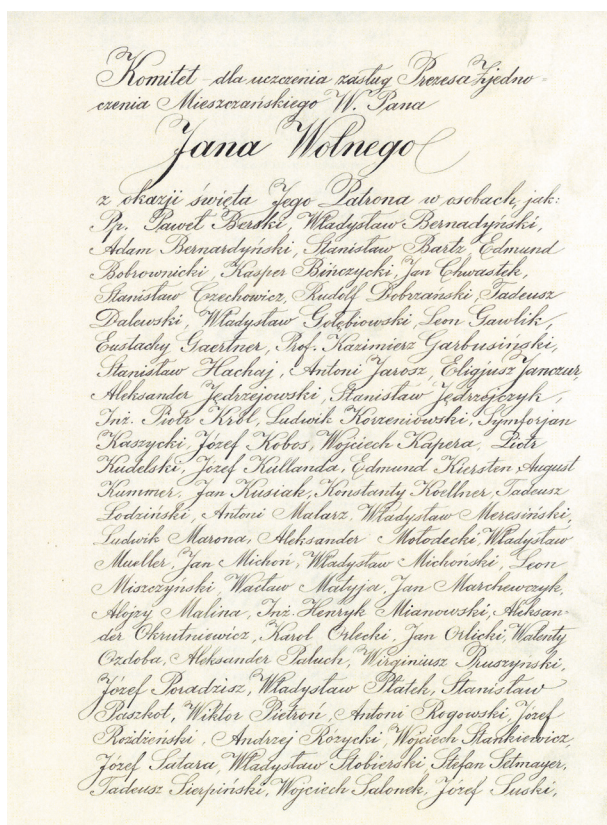 Komitet dla uczczenia zasług Prezesa Zjedno-
czenia Mieszczańskiego W. Pana
Jana Wolnego
z okazji święta Jego Patrona w osobach, jak:
Pp. Paweł Berski, Władysław Bernadyński,
Adam Bernardyński, Stanisław Bartz, Edmund
Bobrownicki, Kasper Bińczycki, Jan Chwastek,
Stanisław Czechowicz, Rudolf Dobrzański, Tadeusz
Dalewski, Władysław Gołębiowski, Leon Gawlik,
Eustachy Gaertner, Prof. Kazimierz Garbusiński,
Stanisław Hachaj, Antoni Jarosz, Eligjusz Janczur,
Aleksander Jędrzejowski, Stanisław Jędrzejczyk,
Inż. Piotr Król, Ludwik Korzeniowski, Symforjan
Kaszycki, Józef Kobos, Wojciech Kapera, Piotr
Kudelski, Józef Kullanda, Edmund Kiersten, August
Kummer, Jan Kusiak, Konstanty Koellner, Tadeusz
Lodziński, Antoni Malarz, Władysław Meresiński,
Ludwik Marona, Aleksander Mołodecki, Władysław
Mueller, Jan Michoń, Władysław Michoński, Leon
Miszczyński, Wacław Matyja, Jan Marchewczyk,
Alojzy Malina, Inż. Henryk Mianowski, Aleksan-
der Okrutniewicz, Karol Orlecki, Jan Orlicki, Walenty
Ozdoba, Aleksander Paluch, Wirginiusz Pruszyński,
Józef Poradzisz, Władysław Płatek, Stanisław
Paszkot, Wiktor Pietroń, Antoni Rogowski, Józef
Rożdżeński, Andrzej Różycki, Wojciech Stankiewicz,
Józef Satara, Władysław Stobierski, Stefan Setmayer,
Tadeusz Sierpiński, Wojciech Salonek, Józef Suski,